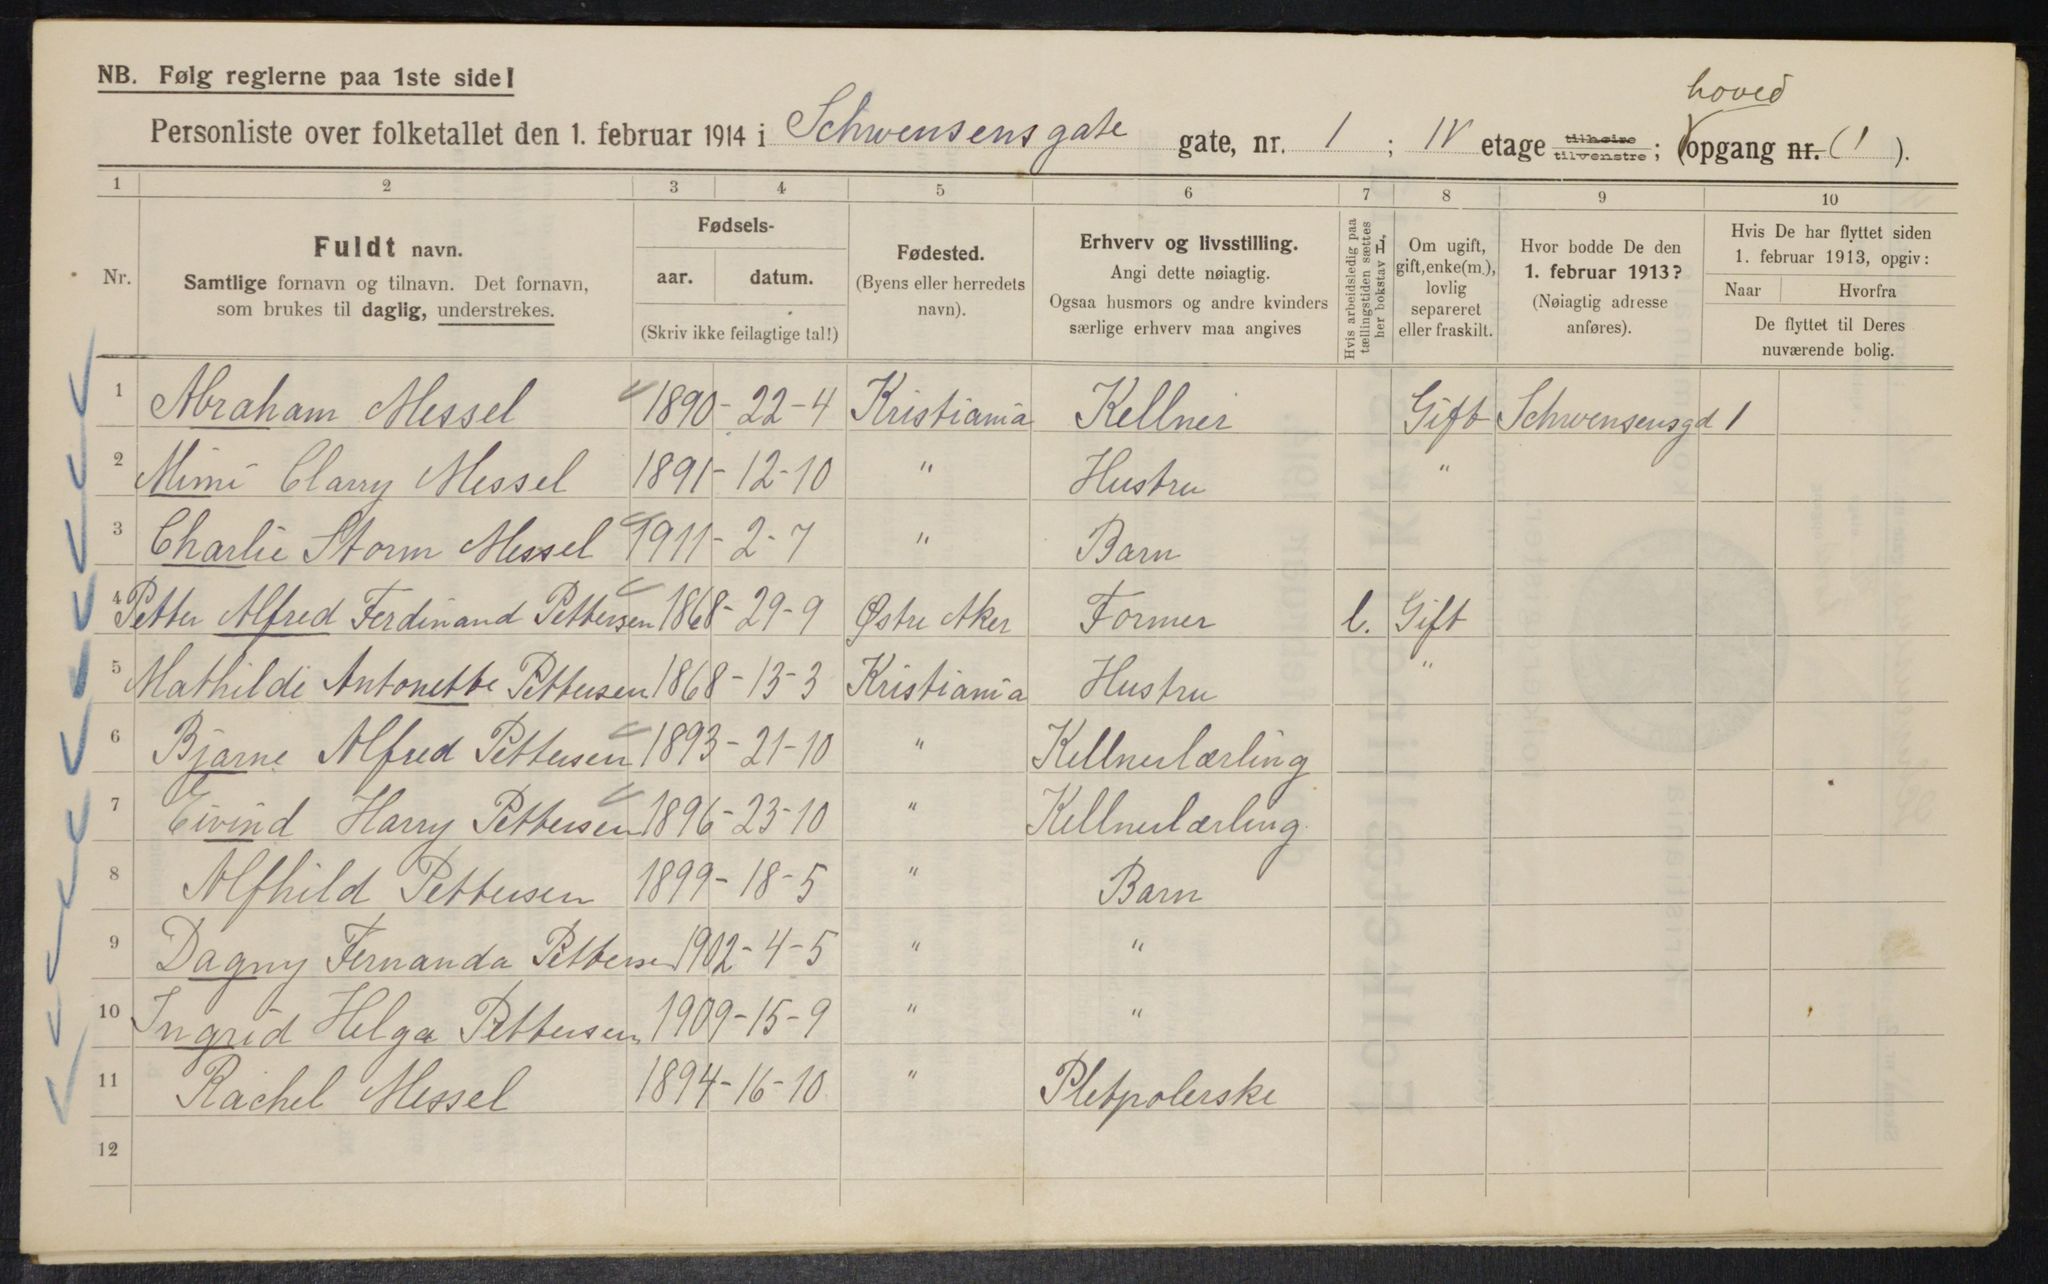 NB. Følg reglerne paa 1ste side!
hoved
Personliste over folketallet den 1. februar 1914 i Schwensensgate gate, nr. 1 ; IV etage tilhøire tilvenstre ; (opgang nr. (1 ).
1 2 3 4 5 6 7 8 9 10
Nr.
Fuldt navn.
Samtlige fornavn og tilnavn. Det fornavn,
som brukes til daglig, understrekes.
Fødsels-
aar. datum.
(Skriv ikke feilagtige tal!)
Fødested.
(Byens eller herredets
navn).
Erhverv og livsstilling.
Angi dette nøiagtig.
Ogsaa husmors og andre kvinders
særlige erhverv maa angives
Hvis arbeidsledig paa
tællingstiden sættes
her bokstav L,
Om ugift,
gift, enke(m.),
lovlig
separeret
eller fraskilt.
Hvor bodde De den
1. februar 1913?
(Nøiagtig adresse
anføres).
Hvis De har flyttet siden
1. februar 1913, opgiv:
Naar Hvorfra
De flyttet til Deres
nuværende bolig.
1 Abraham Messel 1890 - 22 - 4 Kristiania Kellner Gift Schwensensgd 1
2 Mimi Clarry Messel 1891 - 12 - 10 " Hustru "
3 Charlie Storm Messel 1911 - 2 - 7 " Barn
4 Petter Alfred Ferdinand Pettersen 1868 - 29 - 9 Østre Aker Former l. Gift
5 Mathilde Antonette Pettersen 1868 - 13 - 3 Kristiania Hustru "
6 Bjarne Alfred Pettersen 1893 - 21 - 10 " Kellnerlærling
7 Eivind Harry Pettersen 1896 - 23 - 10 " Kellnerlærling.
8 Alfhild Pettersen 1899 - 18 - 5 " Barn
9 Dagny Fernanda Petterse 1902 - 4 - 5 " "
10 Ingrid Helga Pettersen 1909 - 15 - 9 " "
11 Rachel Messel 1894 - 16 - 10 " Pletpolerske
12